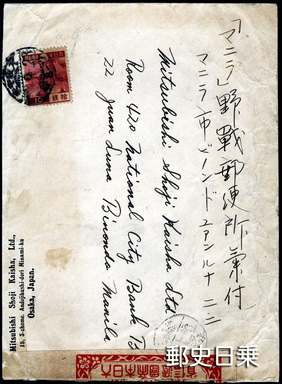 「マニラ」野戰郵便所氣付
マニラ市ビノンド ファンルナ 二二
Mitsubishi Shoji Kaisha Ltd.
Room 420 National City Bank B
22 Juan Luna Binondo Manila
Mitsubishi Shoji Kaisha, Ltd.,
Osaka, Japan.
郵史日乗